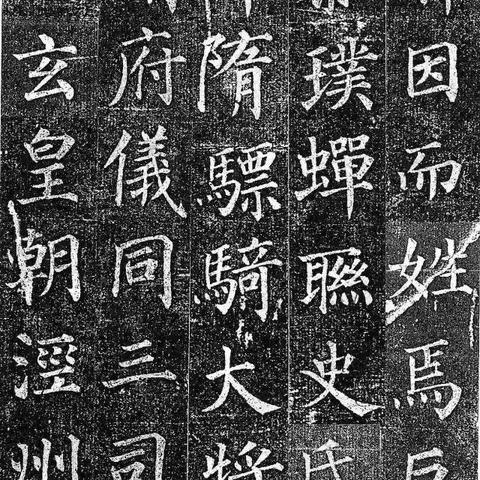 因而姓焉
璞蟬聯史氏
隋驃騎大將
府儀同三司
玄皇朝涇州